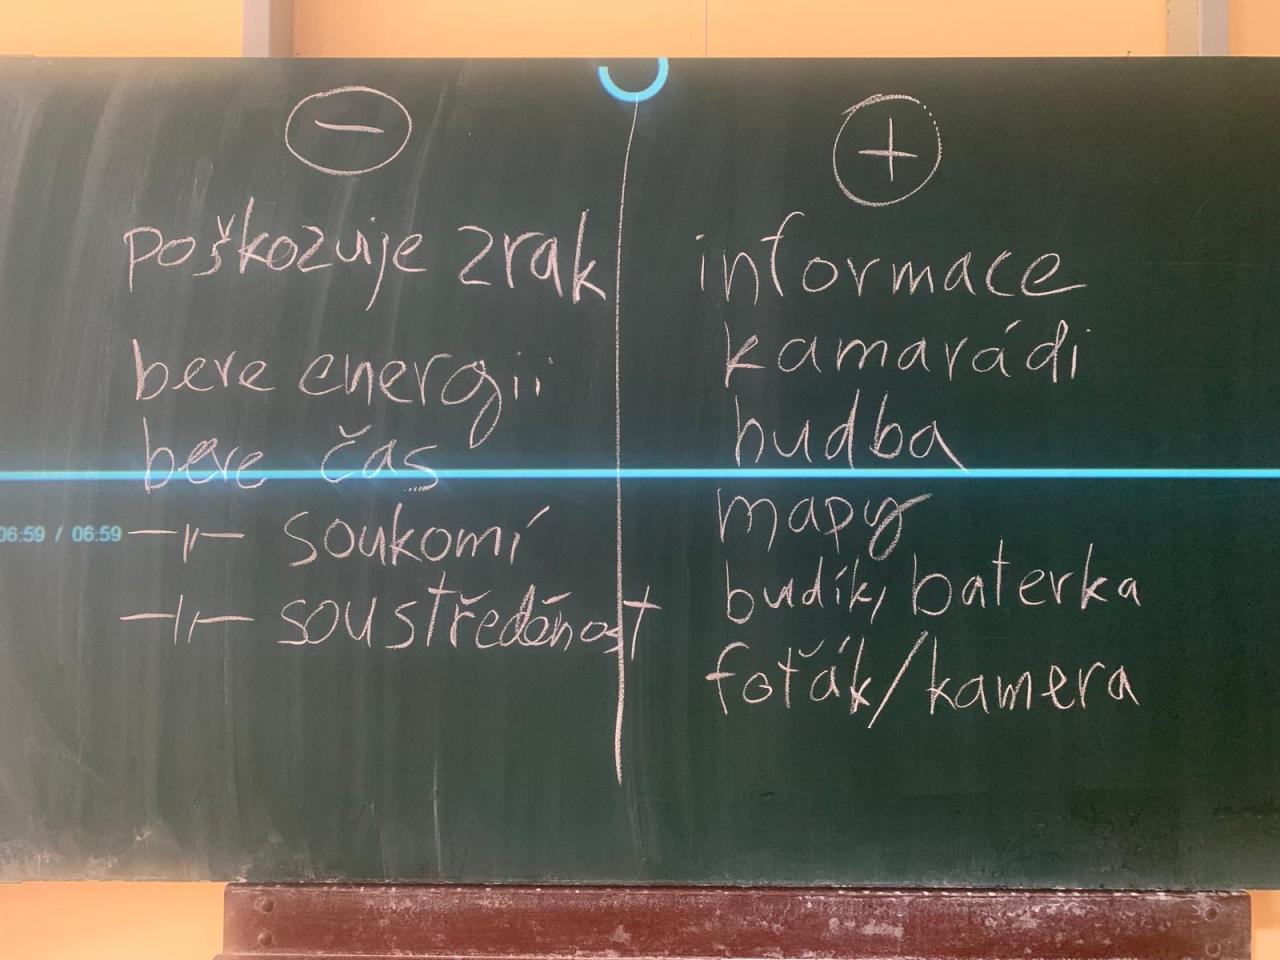 −
poškozuje zrak
bere energii
bere čas
06:59 / 06:59
—||— soukomí
—||— soustředěnost
+
informace
kamarádi
hudba
mapy
budík, baterka
foťák/kamera